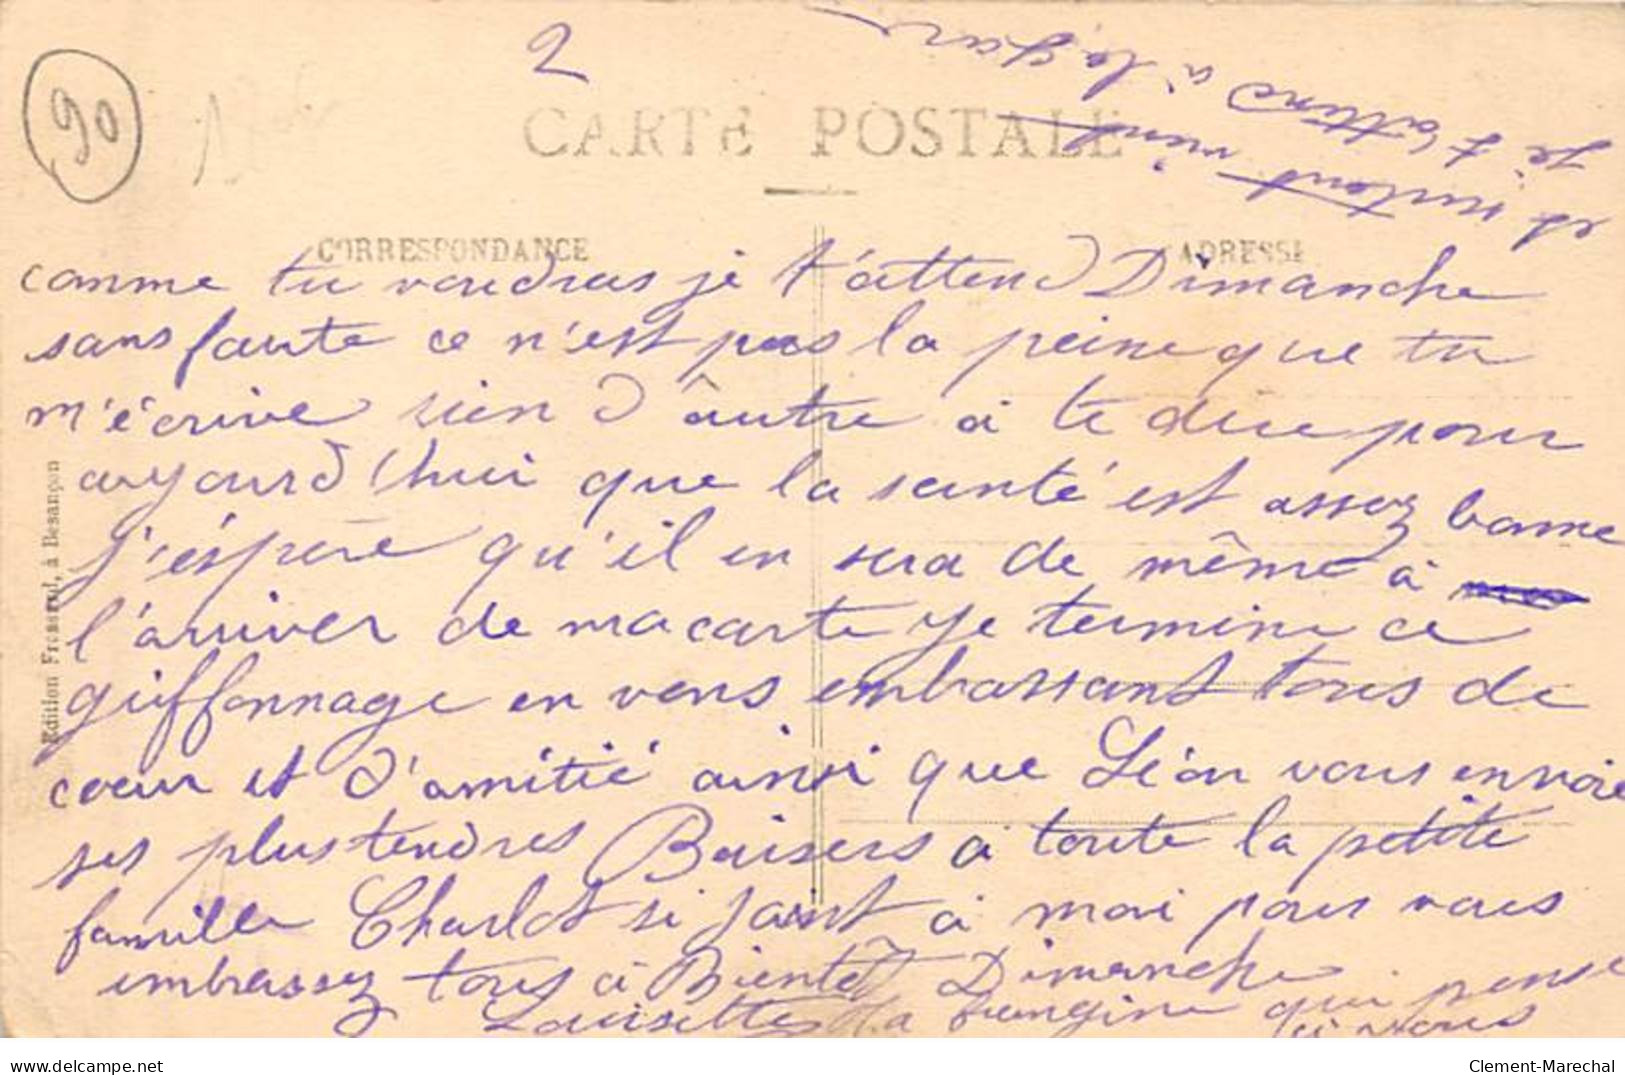 90
2
CARTE POSTALE
CORRESPONDANCE
ADRESSE
comme tu voudras je t'attend Dimanche
sans faute ce n'est pas la peine que tu
m'écrive rien d'âutre a te dire pour
aujourd'hui que la santé est assez bonne
j'éspère qu'il en sera de même a
l'arriver de ma carte je termine ce
griffonnage en vous embrassant tous de
coeur et d'amitié ainsi que Léon vous envoie
ses plus tendres Baisers a toute la petite
famille Charlot si joint a moi pour vous
embrassez tous a Bientôt Dimanche
Louisette qui pense
à vous
et surtout vient
je t'attend a la gare
Edition à Besançon
delcampe.net
Clement-Marechal